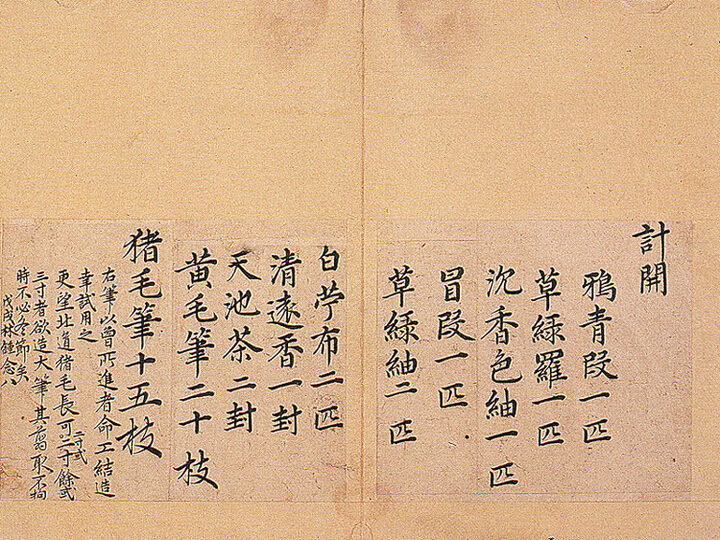 計開
鴉青段一匹
草綠羅一匹
沉香色紬一匹
冒段一匹
草綠紬二匹
白苧布二匹
清遠香一封
天池茶二封
黄毛筆二十枝
猪毛筆十五枝
右筆以曾所進者命工結造
幸試用之
更望北道猪毛長可二寸餘或
三寸者欲造大筆其取不拘
時不必冬節矣
戊戌林鍾念八